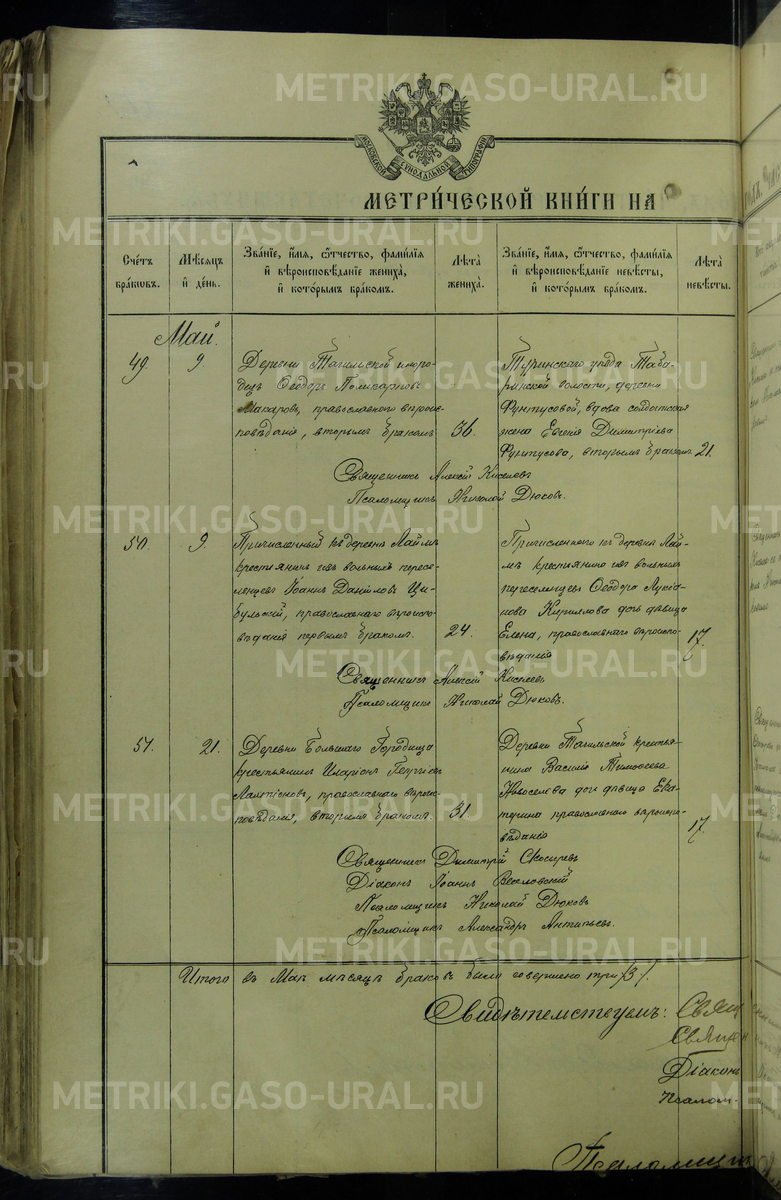 METRIKI.GASO-URAL.RU
МОСКОВСКОЙ СѴНОДАЛЬНОЙ ТИПОГРАФІИ
МЕТРИ́ЧЕСКОЙ КНИ́ГИ НА
Сче́тъ бра́ковъ.
Мѣ́сяцъ и҆ де́нь.
Зва́нїе, и҆́мѧ, ѻ҆́тчество, фами́лїѧ и҆ вѣроисповѣ́данїе жениха̀, и҆ кото́рымъ бра́комъ.
Лѣ́та жениха̀.
Зва́нїе, и҆́мѧ, ѻ҆́тчество, фами́лїѧ и҆ вѣроисповѣ́данїе невѣ́сты, и҆ кото́рымъ бра́комъ.
Лѣ́та невѣ́сты.
Май
49. 9.
Деревни Тагильской иноро-
децъ Ѳеодоръ Поликарповъ
Макаровъ, православнаго вѣроис-
повѣданія, вторымъ бракомъ
36.
Туринскаго уѣзда Таба-
ринской волости, деревни
Фунтусовой, вдова солдатская
жена Евгенія Димитріева
Фунтусова, вторымъ бракомъ
21.
Священникъ Алексій Киселевъ
Псаломщикъ Николай Дюковъ.
50. 9.
Причисленный къ деревнѣ Лаймъ
крестьянинъ изъ вольныхъ пересе-
ленцевъ Іоаннъ Даніиловъ Ци-
бульскій, православнаго вѣроиспо-
вѣданія первымъ бракомъ.
24.
Причисленнаго къ деревнѣ Лай-
мъ крестьянина изъ вольныхъ
переселенцевъ Ѳеодора Лукіа-
нова Кириллова дочь дѣвица
Елена, православнаго вѣроиспо-
вѣданія
17.
Священникъ Алексій Киселевъ
Псаломщикъ Николай Дюковъ.
51. 21.
Деревни Большаго Городища
крестьянинъ Иларіонъ Георгіевъ
православнаго вѣроис-
повѣданія, вторымъ бракомъ.
31.
Деревни Тагильской крестья-
нина Василія Тимоѳеева
Новоселова дочь дѣвица Ека-
терина православнаго вѣроиспо-
вѣданія
17.
Священникъ Димитрій Скосыревъ
Діаконъ Іоаннъ Веселовскій
Псаломщикъ Николай Дюковъ
Псаломщикъ Александръ Антипьевъ.
Итого въ Маѣ мѣсяцѣ браковъ было совершено три /3/.
Свидѣтельствуемъ: Свящ
Священ
Діаконъ
Псалом-
Псаломщикъ